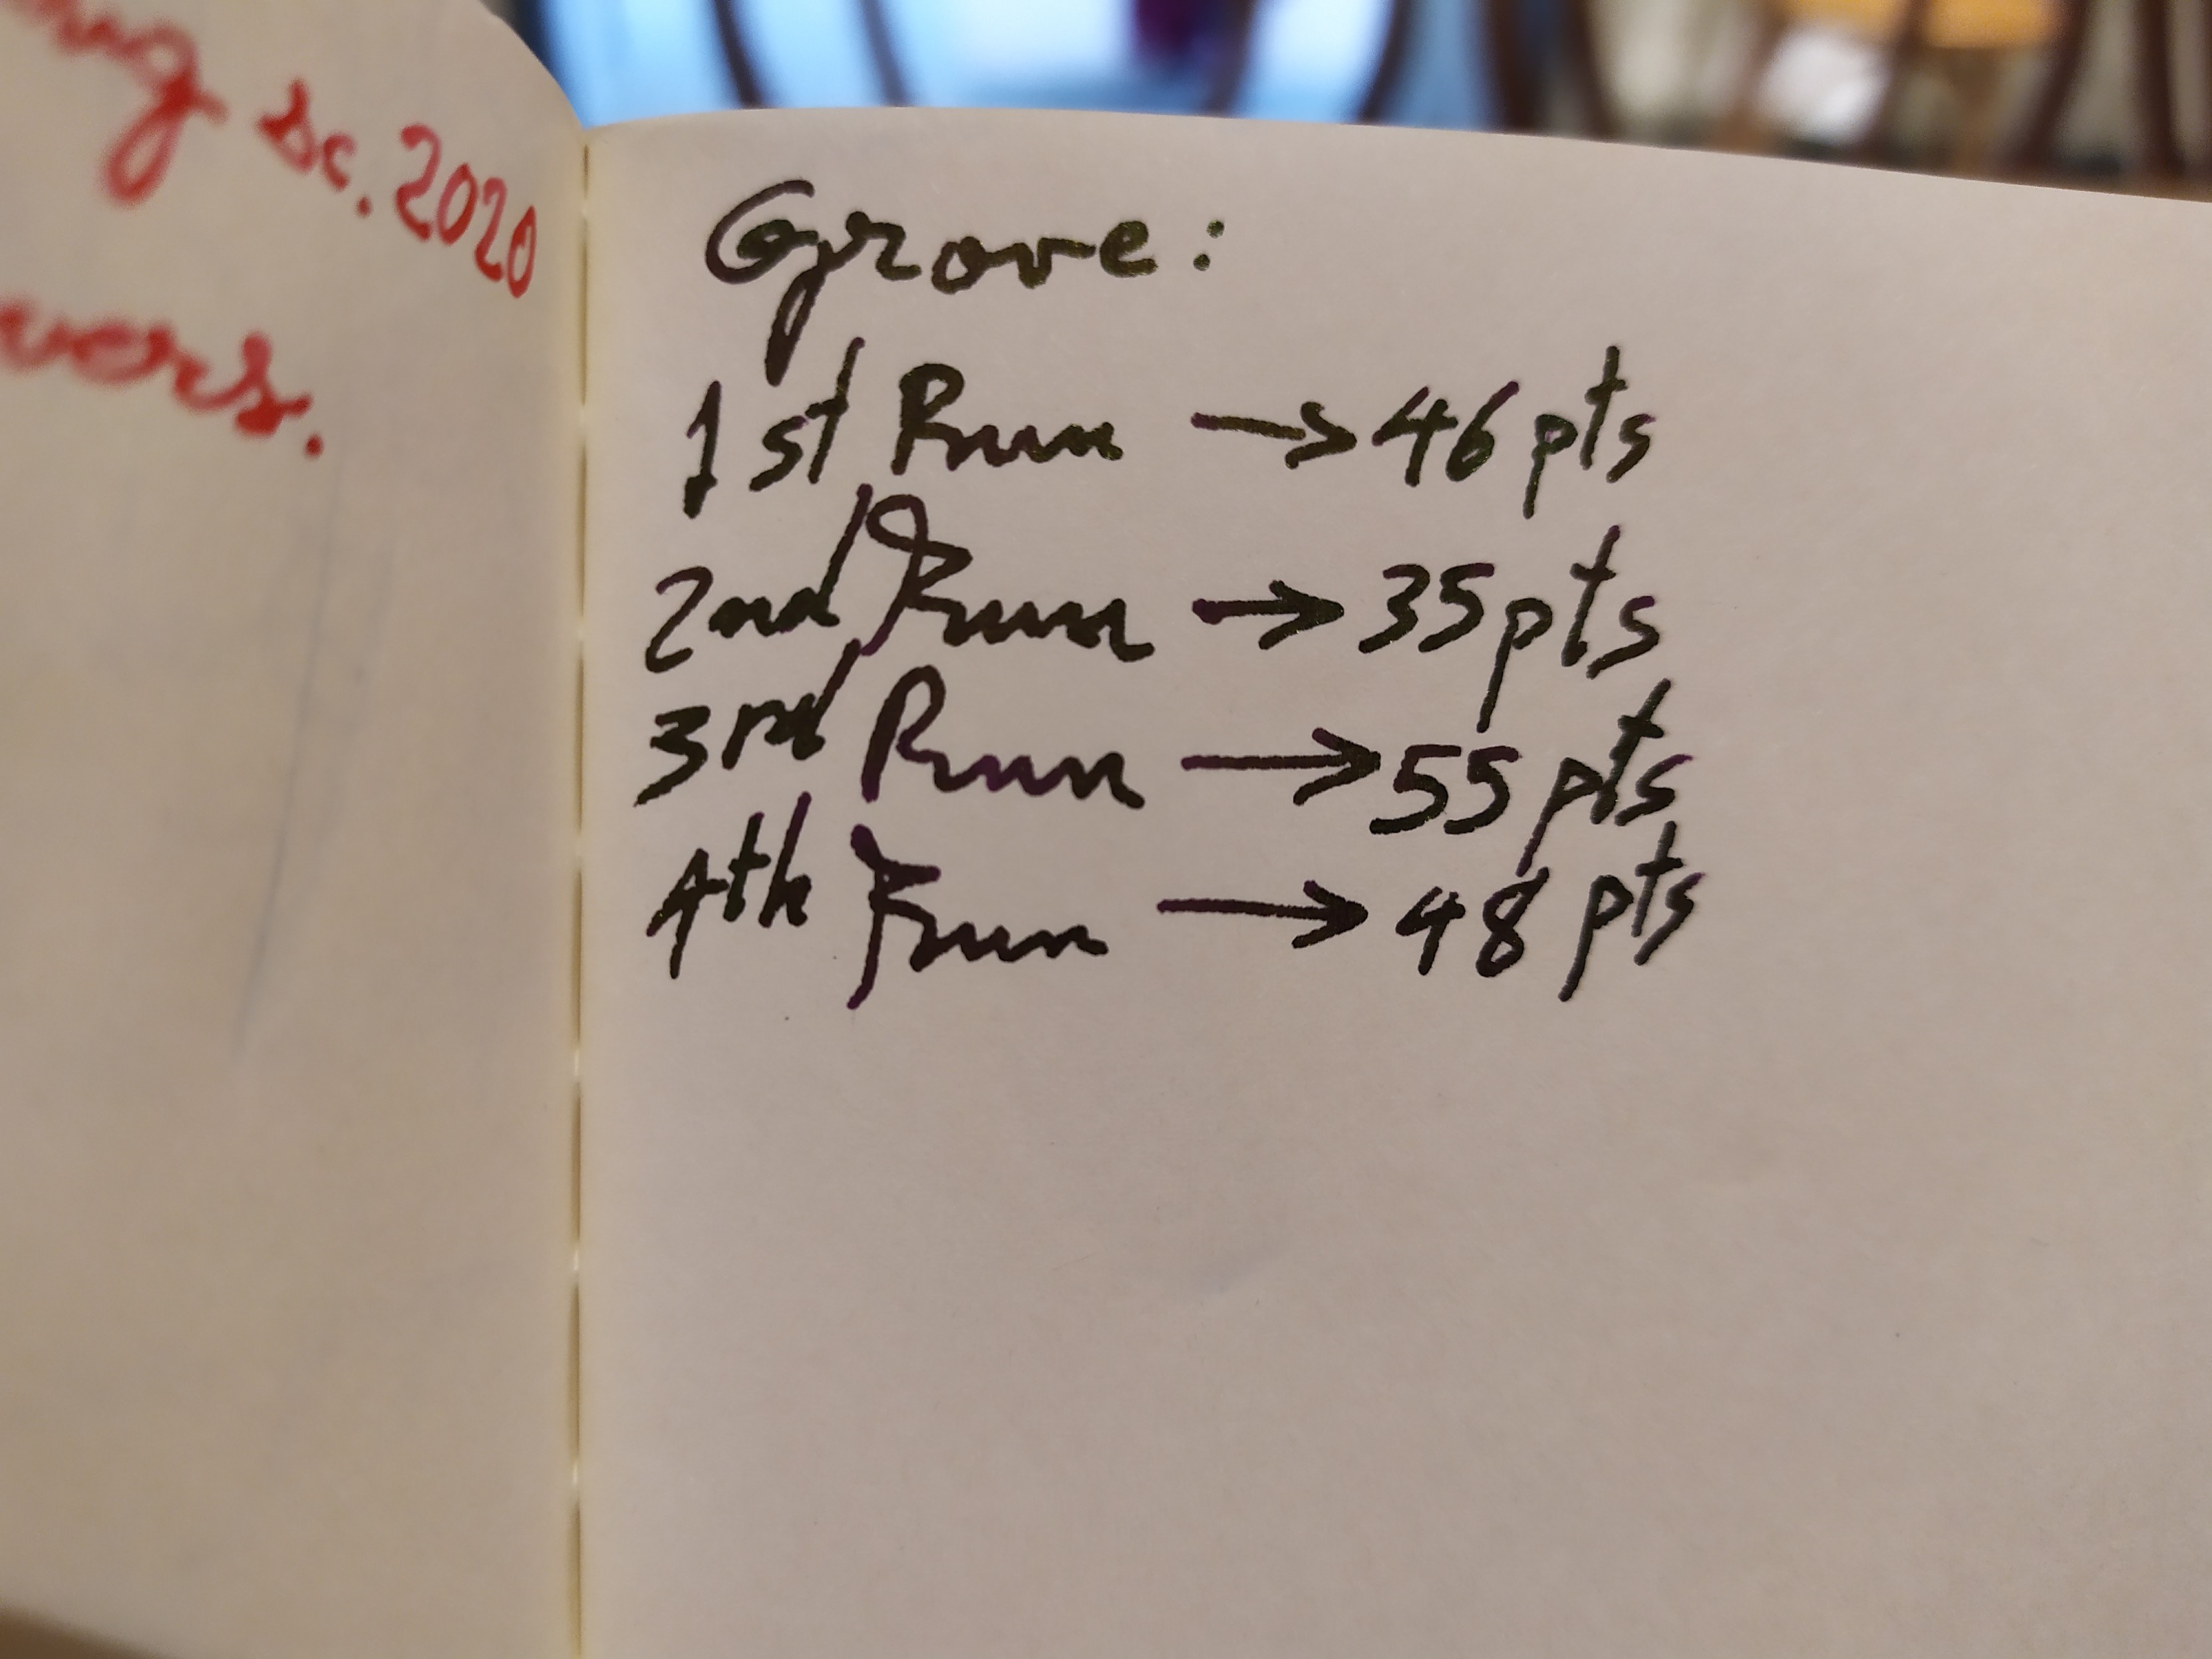 2020
Grove:
1st Run → 46 pts
2nd Run → 35 pts
3rd Run → 55 pts
4th Run → 48 pts